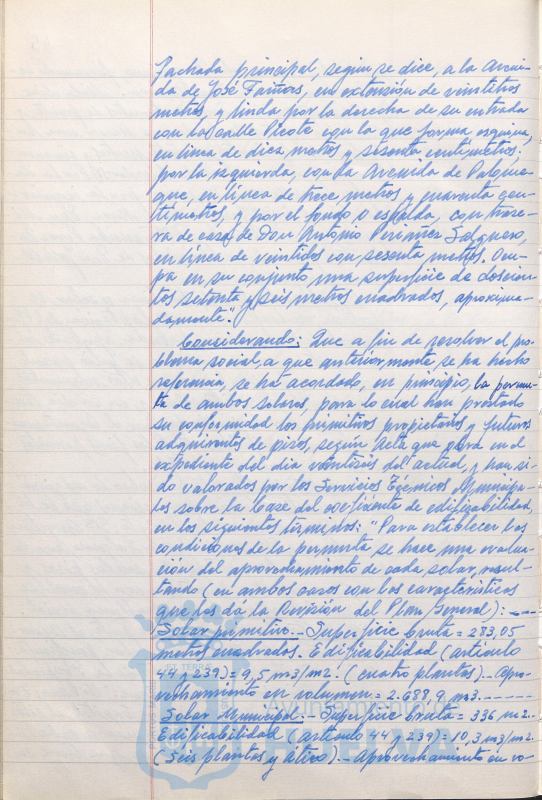 fachada principal, según se dice, a la Aveni-
da de José Fariñas, en extensión de veintitres
metros, y linda por la derecha de su entrada
con la calle Picote con la que forma esquina,
en línea de diez metros y sesenta centímetros;
por la izquierda, con la Avenida de Palque-
que, en línea de trece metros y cuarenta cen-
tímetros, y por el fondo o espalda, con trase-
ra de casa de Don Antonio Periañez Salguero,
en línea de veintidos con sesenta metros. Ocu-
pa en su conjunto una superficie de doscien-
tos setenta y seis metros cuadrados, aproxima-
damente".
Considerando: Que a fin de resolver el pro-
blema social, a que anteriormente se ha hecho
referencia, se ha acordado, en principio, la permu-
ta de ambos solares, para lo cual han prestado
su conformidad los primitivos propietarios y futuros
adquirentes de pisos, según Acta que obra en el
expediente del dia veintiséis del actual, y han si-
do valorados por los Servicios Técnicos Municipa-
les sobre la base del coeficiente de edificabilidad,
en los siguientes términos: "Para establecer las
condiciones de la permuta se hace una evalua-
ción del aprovechamiento de cada solar, resul-
tando (en ambos casos con las características
que les da la Revisión del Plan General): ---
Solar primitivo.- Superficie bruta = 283,05
metros cuadrados. Edificabilidad (artículo
44 y 239) = 9,5 m3/m2. (cuatro plantas).- Apro-
vechamiento en volumen = 2.688,9 m3. -----
Solar Municipal.- Superficie bruta = 336 m2.-
Edificabilidad (artículo 44 y 239) = 10,3 m3/m2.
(Seis plantas y ático).- Aprovechamiento en vo-
Ayuntamiento de
HUELVA